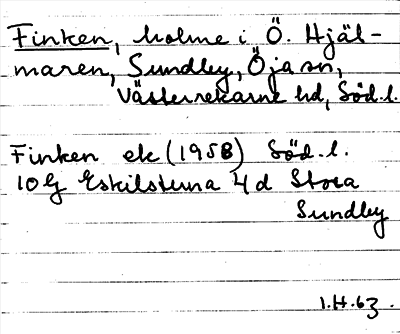 Finken, holme i Ö. Hjäl-
maren, Sundby, Öja sn,
Västerrekarne hd, Söd.l.
Finken ek (1958) Söd.l.
10G Eskilstuna 4d Stora
Sundby
1.H.63.